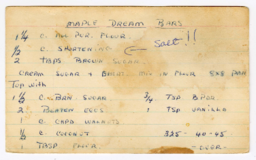 MAPLE DREAM BARS
1 1/4 C. ALL PUR. FLOUR
1/2 C. SHORTENING Salt!!
2 TBPS BROWN SUGAR
CREAM SUGAR & MIX IN FLOUR 8X8 PAN
Top with
1 1/2 C. BRN SUGAR 3/4 TSP B. PDR.
2 BEATEN EGGS 1 TSP VANILLA
1 C. CHPD WALNUTS
1/2 C. COCONUT 325 - 40-45
1 TBSP FLOUR